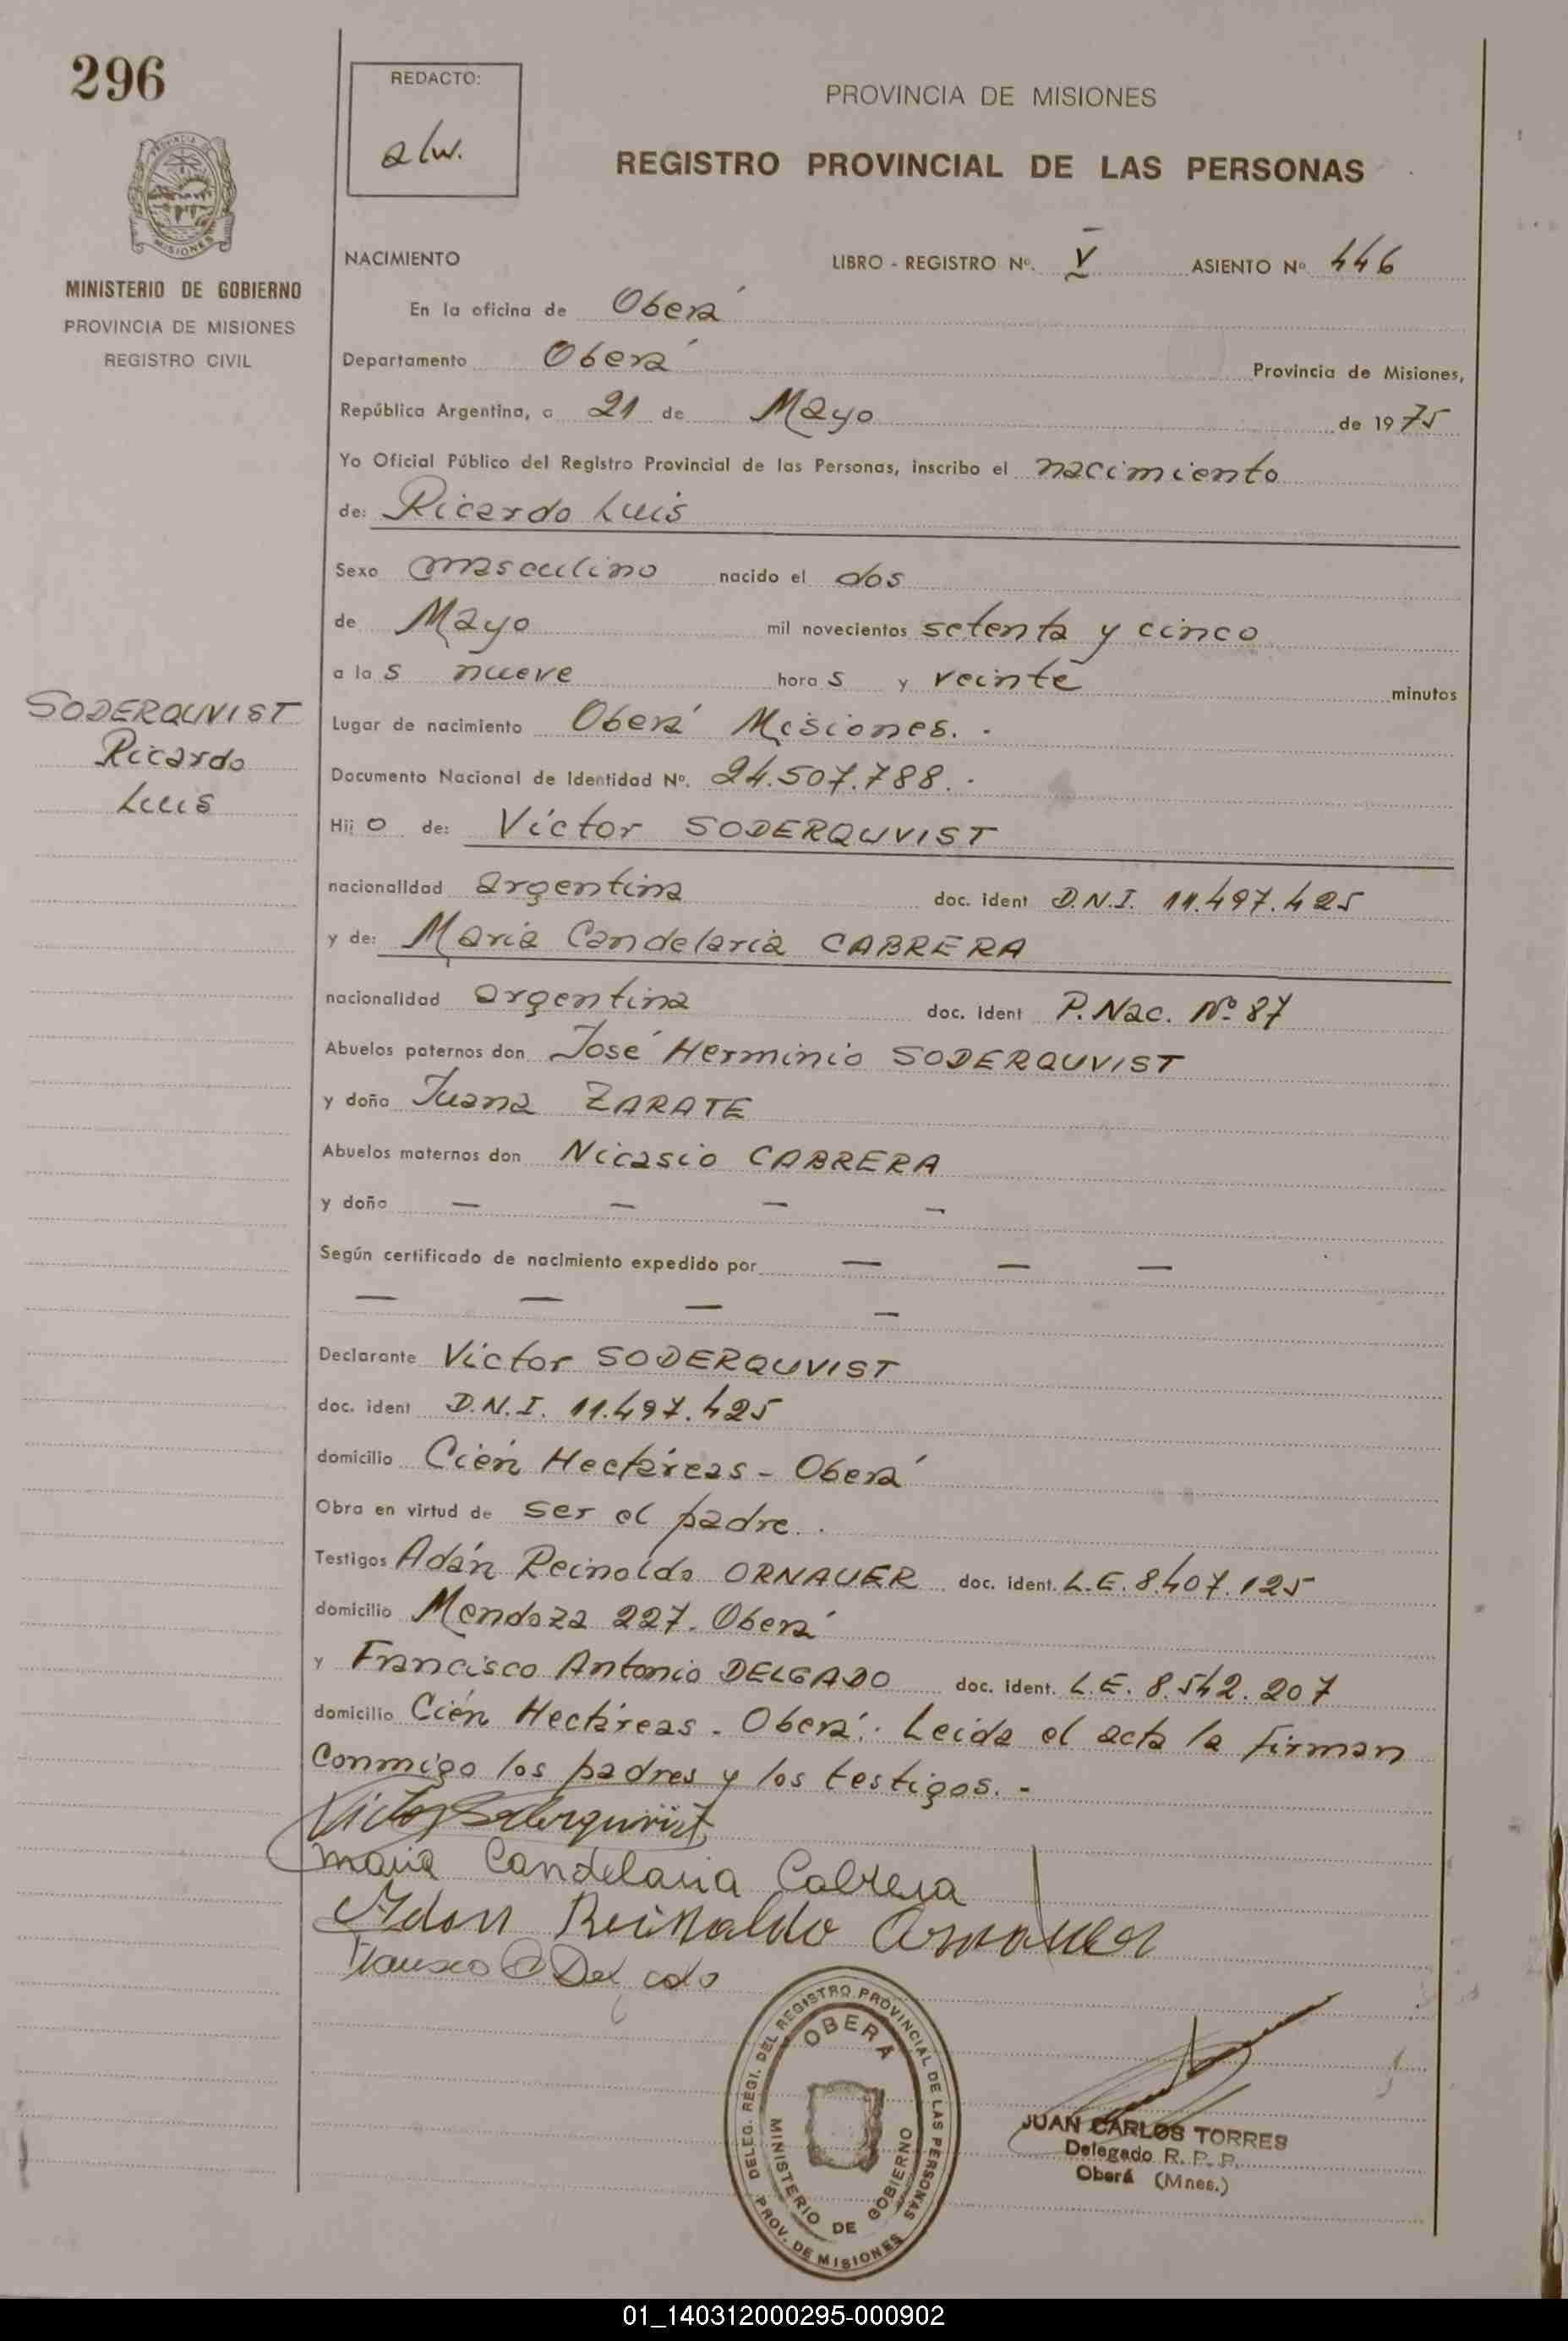 296
REDACTO:
alw.
PROVINCIA DE MISIONES
REGISTRO PROVINCIAL DE LAS PERSONAS
PROVINCIA DE
MISIONES
MINISTERIO DE GOBIERNO
PROVINCIA DE MISIONES
REGISTRO CIVIL
NACIMIENTO LIBRO - REGISTRO Nº. V ASIENTO Nº 446
En la oficina de Oberá
Departamento Oberá Provincia de Misiones,
República Argentina, a 21 de Mayo de 1975
Yo Oficial Público del Registro Provincial de las Personas, inscribo el nacimiento
de: Ricardo Luis
Sexo masculino nacido el dos
de Mayo mil novecientos setenta y cinco
a las nueve horas y veinte minutos
SODERQUVIST
Ricardo
Luis
Lugar de nacimiento Oberá Misiones. -
Documento Nacional de Identidad Nº. 24.507.788. -
Hijo de: Victor SODERQUVIST
nacionalidad argentina doc. ident D.N.I. 11.497.425
y de: Maria Candelaria CABRERA
nacionalidad argentina doc. ident P. Nac. Nº 87
Abuelos paternos don José Herminio SODERQUVIST
y doña Juana ZARATE
Abuelos maternos don Nicasio CABRERA
y doña — — — —
Según certificado de nacimiento expedido por — — —
— — — —
Declarante Victor SODERQUVIST
doc. ident D.N.I. 11.497.425
domicilio Cién Hectáreas - Oberá
Obra en virtud de ser el padre. .
Testigos Adán Reinoldo ORNAUER doc. ident. L.E. 8.407.125
domicilio Mendoza 227. Oberá
y Francisco Antonio DELGADO doc. ident. L.E. 8.542.207
domicilio Cién Hectáreas - Oberá. Leida el acta la firman
conmigo los padres y los testigos. -
Victor Soderquvist
Maria Candelaria Cabrera
Adan Reinaldo Ornauer
Francisco A Delgado
DELEG. REGI. DEL REGISTRO PROVINCIAL DE LAS PERSONAS
OBERA
MINISTERIO DE GOBIERNO
PROV. DE MISIONES
JUAN CARLOS TORRES
Delegado R. P. P.
Oberá (Mnes.)
01_140312000295-000902